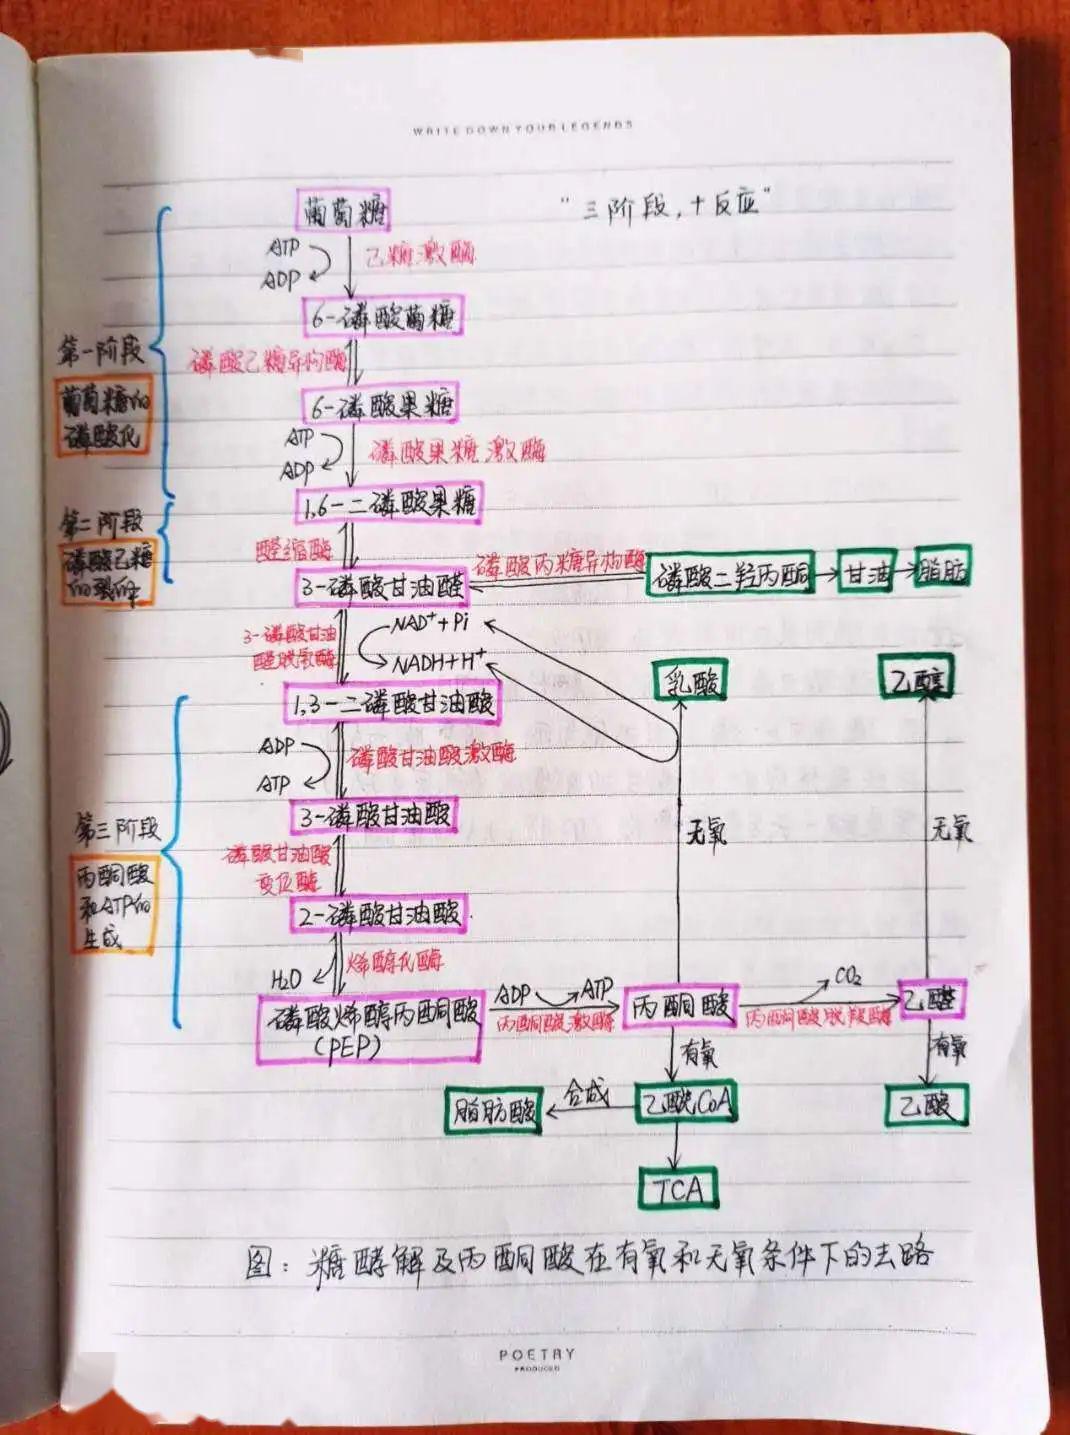 WRITE DOWN YOUR LEGENDS
"三阶段,十反应"
葡萄糖
ATP
ADP
己糖激酶
6-磷酸葡糖
第一阶段
葡萄糖的
磷酸化
磷酸己糖异构酶
6-磷酸果糖
ATP
ADP
磷酸果糖激酶
1,6-二磷酸果糖
第二阶段
磷酸己糖
的裂解
醛缩酶
3-磷酸甘油醛
磷酸丙糖异构酶
磷酸二羟丙酮
甘油
脂肪
3-磷酸甘油
醛脱氢酶
NAD⁺+Pi
NADH+H⁺
1,3-二磷酸甘油酸
乳酸
乙醇
ADP
ATP
磷酸甘油酸激酶
3-磷酸甘油酸
第三阶段
丙酮酸
和ATP的
生成
磷酸甘油酸
变位酶
无氧
无氧
2-磷酸甘油酸
H₂O
烯醇化酶
磷酸烯醇丙酮酸
(PEP)
ADP
ATP
丙酮酸激酶
丙酮酸
CO₂
丙酮酸脱羧酶
乙醛
有氧
有氧
脂肪酸
合成
乙酰CoA
乙酸
TCA
图:糖酵解及丙酮酸在有氧和无氧条件下的去路
POETRY
PRODUCED